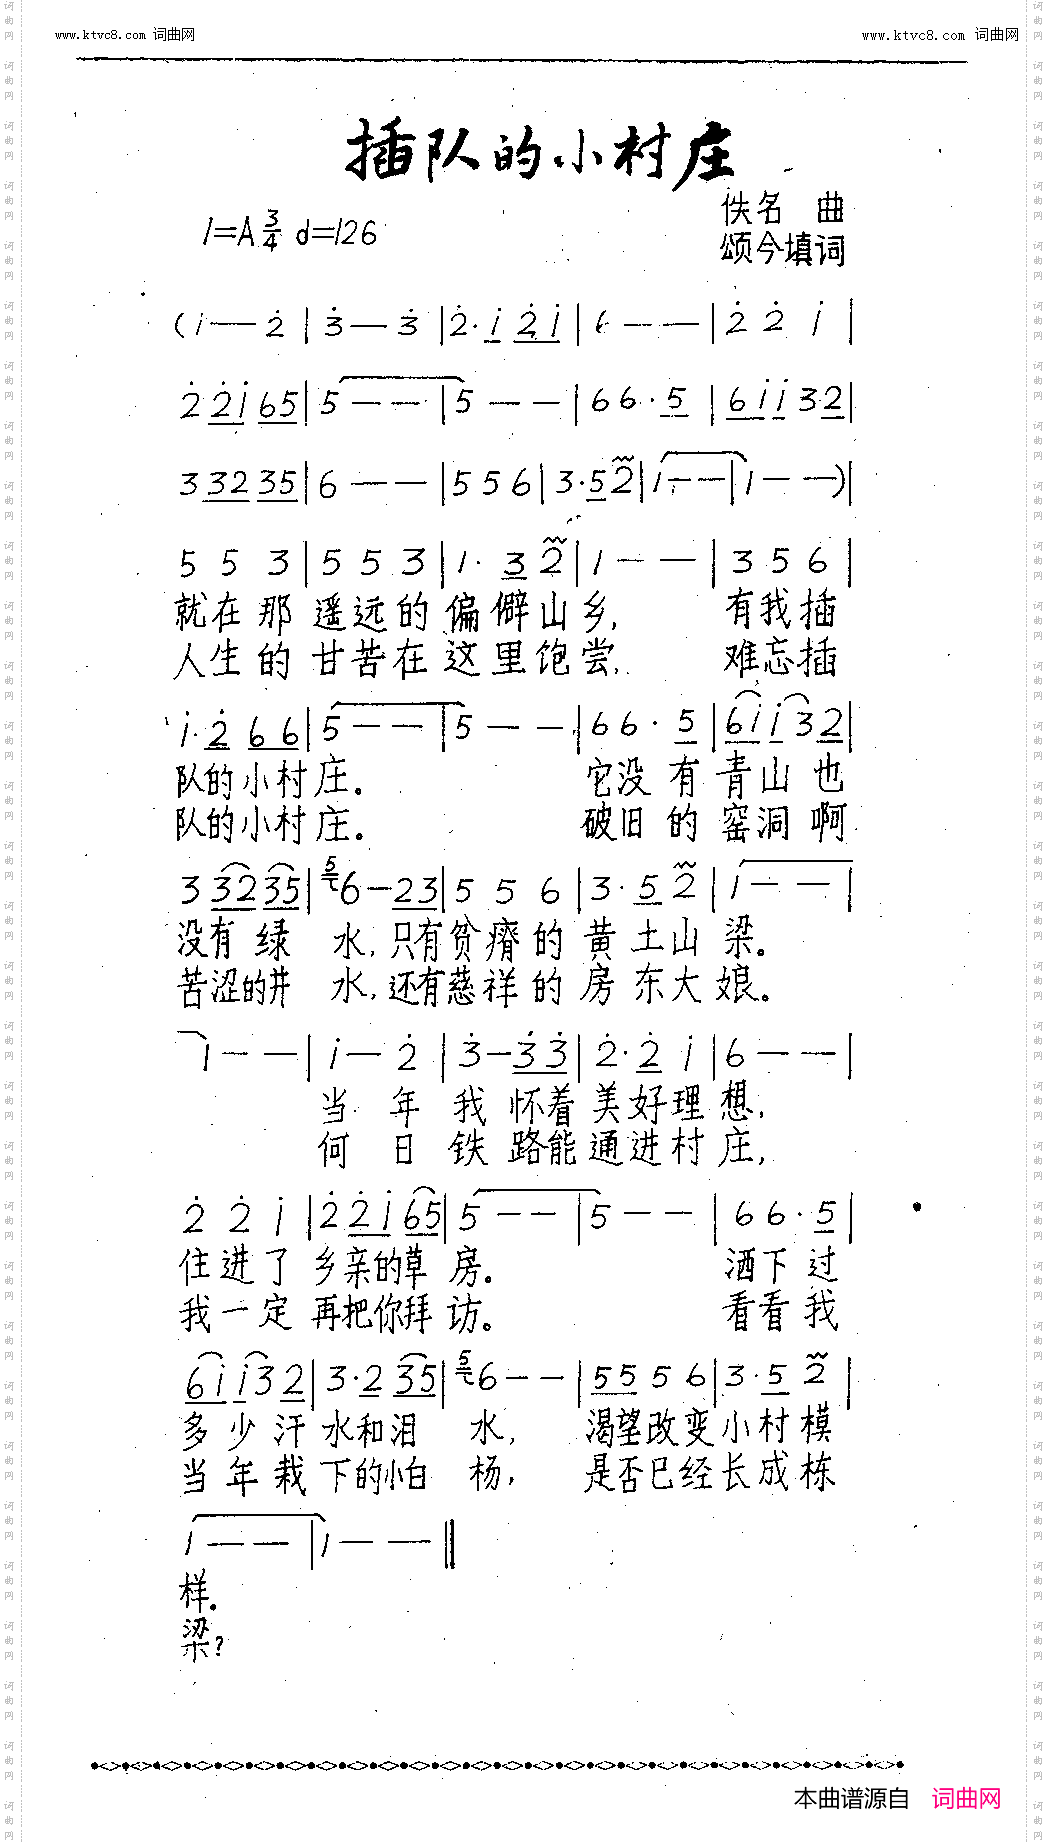 www.ktvc8.com 词曲网 www.ktvc8.com 词曲网
插队的小村庄
佚名 曲
1=A 3/4 d=126
颂今填词
(i — 2̇ | 3̇ — 3̇ | 2̇· i 2̇ i | 6 — — | 2̇ 2̇ i |
2̇ 2̇ i 6 5 | 5 — — | 5 — — | 6 6· 5 | 6 i i 3 2 |
3 3 2 3 5 | 6 — — | 5 5 6 | 3· 5 2 | 1 — — | 1 — —) |
5 5 3 | 5 5 3 | 1· 3 2 | 1 — — | 3 5 6 |
就在那 遥远的 偏僻山乡, 有我插
人生的 甘苦在 这里饱尝, 难忘插
i· 2̇ 6 6 | 5 — — | 5 — — | 6 6· 5 | 6 i i 3 2 |
队的小村庄。 它没有青山也
队的小村庄。 破旧的窑洞啊
3 3 2 3 5 | 5 6 — 2 3 | 5 5 6 | 3· 5 2 | 1 — — |
没有绿 水,只有贫瘠的黄土山梁。
苦涩的井 水,还有慈祥的房东大娘。
1 — — | i — 2̇ | 3̇ — 3̇ 3̇ | 2̇· 2̇ i | 6 — — |
当年我怀着美好理想,
何日铁路能通进村庄,
2̇ 2̇ i | 2̇ 2̇ i 6 5 | 5 — — | 5 — — | 6 6· 5 |
住进了乡亲的草房。 洒下过
我一定再把你拜访。 看看我
6 i i 3 2 | 3· 2 3 5 | 5 6 — — | 5 5 5 6 | 3· 5 2 |
多少汗水和泪 水, 渴望改变小村模
当年栽下的小白 杨, 是否已经长成栋
1 — — | 1 — — ‖
样。
梁?
本曲谱源自 词曲网